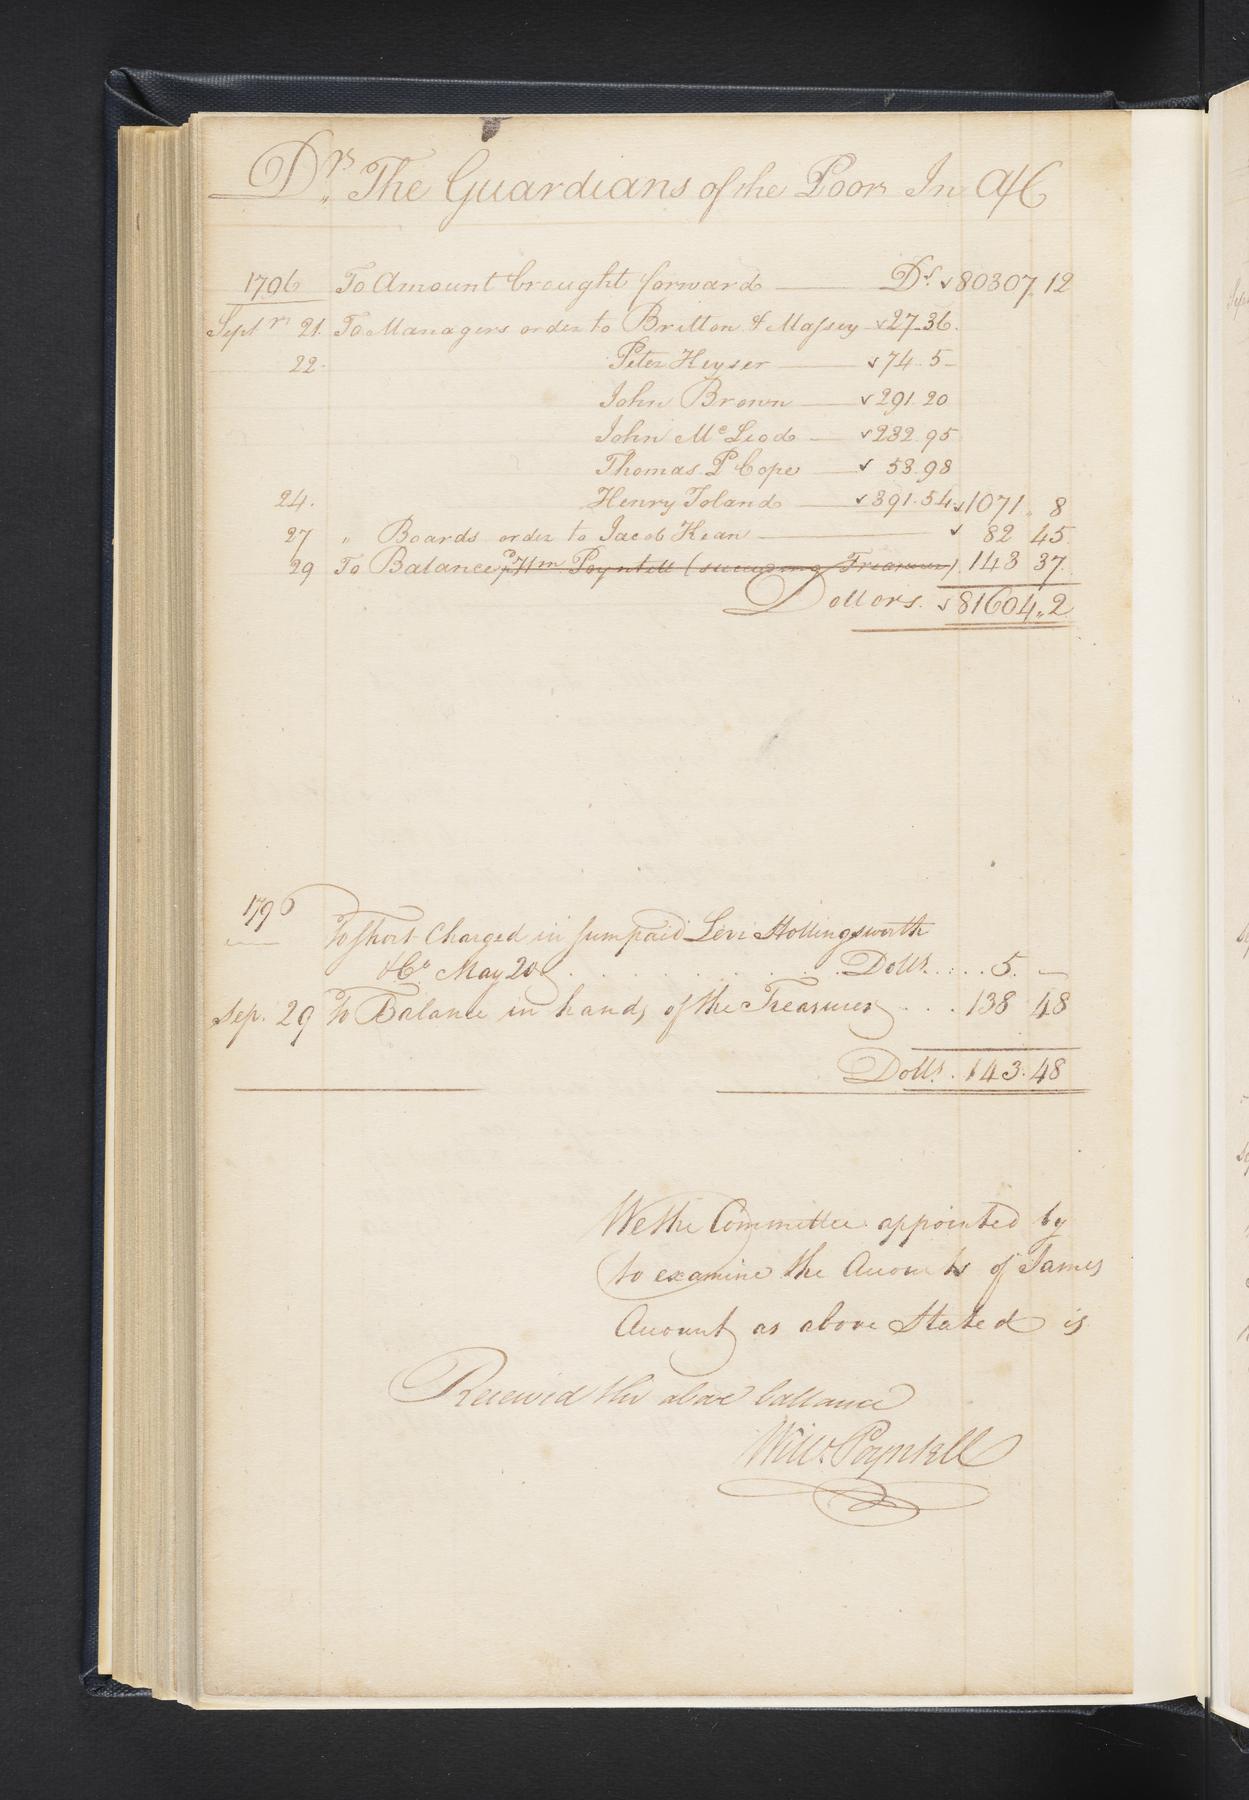 Drs. The Guardians of the Poor In a/c
1796 To Amount brought forward Drs. 80307,12
Septr. 21. To Managers order to Britton & Massey 27.36.
22. Peter Keyser 74.5
John Brown 291.20
John McLeod 232.95
Thomas P Cope 53.98
24. Henry Toland 391.54 1071,, 8
27 " Boards order to Jacob Kean 82 45
29 To Balance pr Wm Poyntell (succeeding Treasurer) 143 37
Dollars. 81604,,2
1796
To short Charged in sum paid Levi Hollingsworth
& Co May 20 Dolls. 5. —
Sep. 29 To Balance in hands of the Treasurer 138 48
Dolls. 143.48
We the Committee appointed by
to examine the Accounts of James
Account as above Stated is
Received the above ballance
Willm. Poyntell